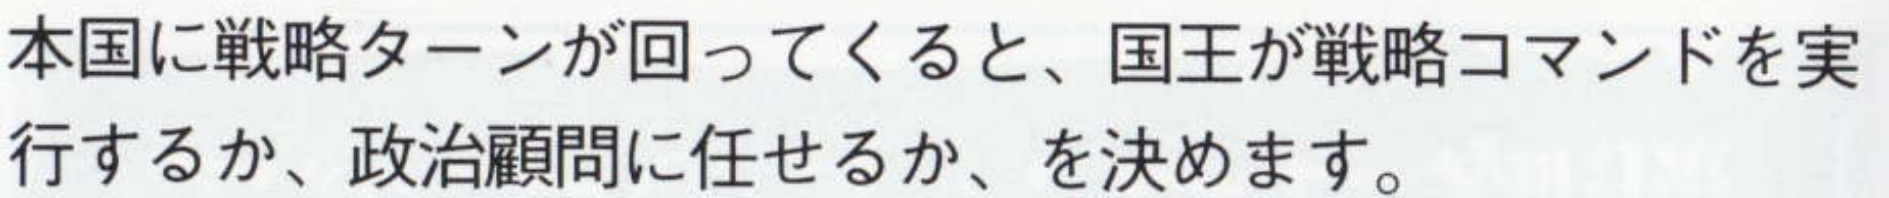 本国に戦略ターンが回ってくると、国王が戦略コマンドを実
行するか、政治顧問に任せるか、を決めます。